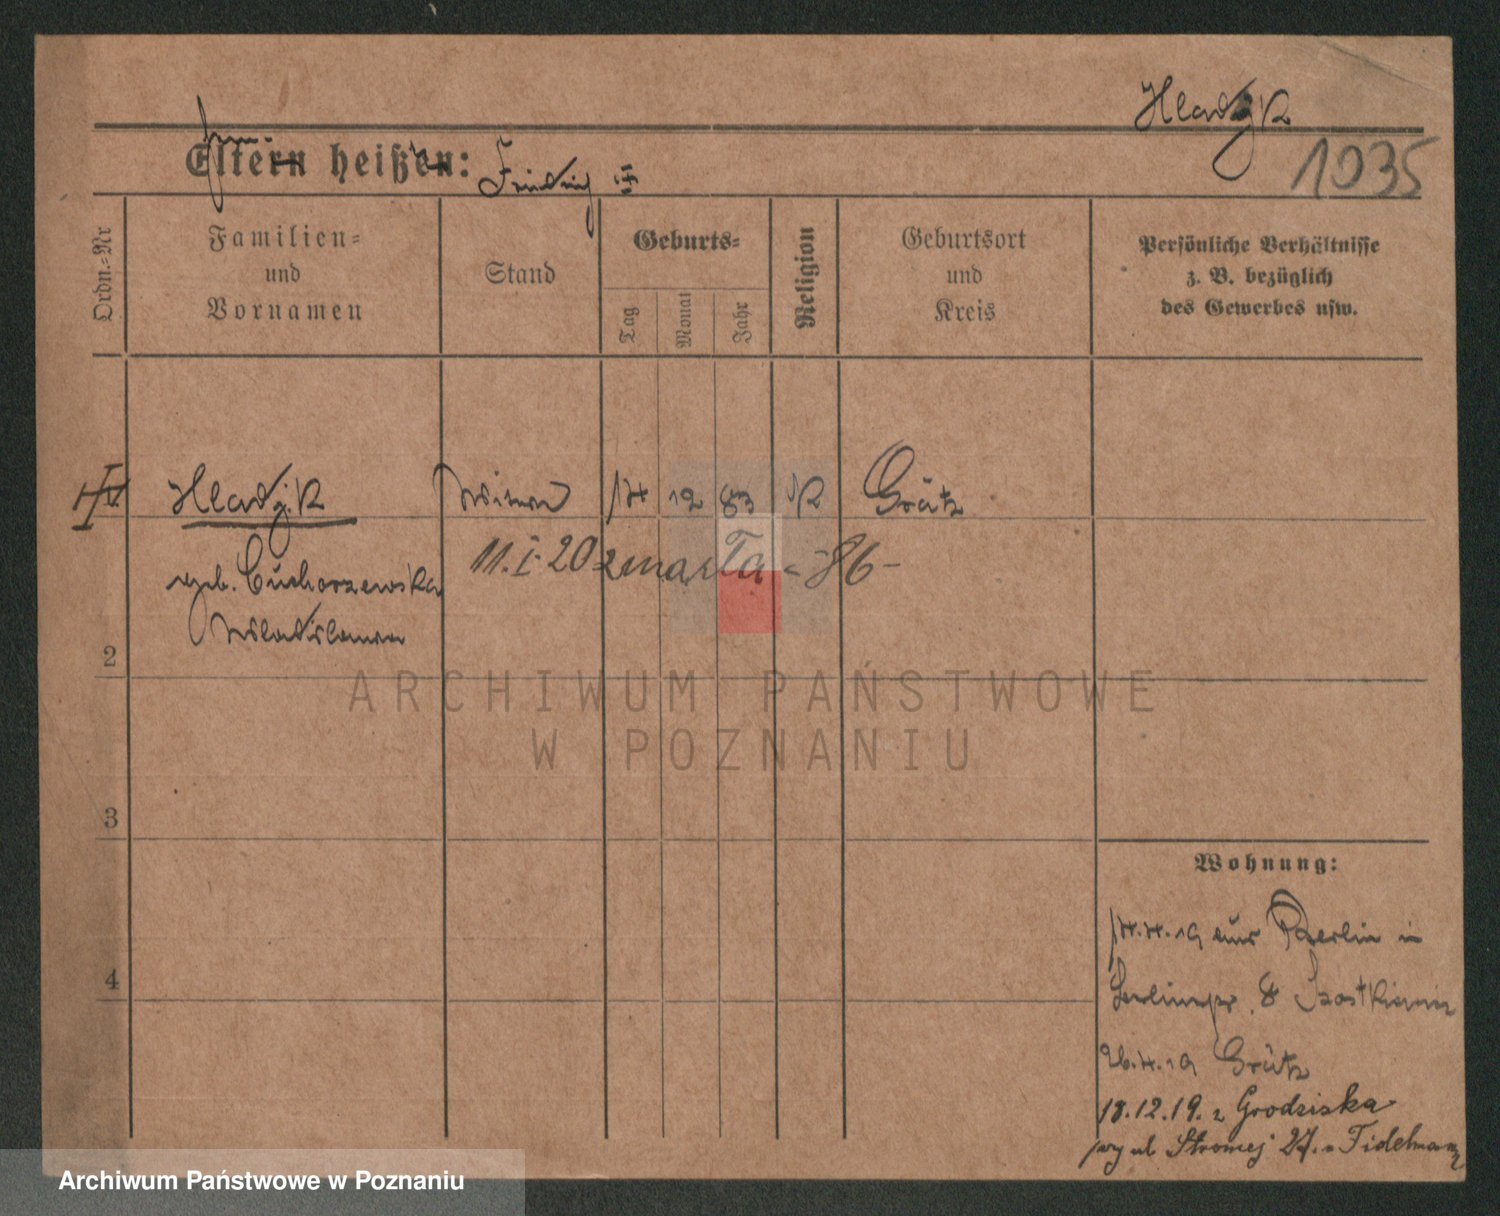 Hladyk
Eltern heißen: Friedrich
1035
Ordn.=Nr
Familien=
und
Vornamen
Stand
Geburts=
Tag
Monat
Jahr
Religion
Geburtsort
und
Kreis
Persönliche Verhältnisse
z. B. bezüglich
des Gewerbes usw.
Hladyk Witwe 14 12 83 K Grätz
11. I. 20 zmarła - 86 -
geb. Cucharzewska
Wladislawa
2
ARCHIWUM PAŃSTWOWE
W POZNANIU
3
Wohnung:
14.4.19 aus Berlin in
Berlinerstr. 8 Szostkiewicz
4
26.4.19 Grätz
18.12.19. z Grodziska
przy ul. Stromej 27. Fidelman
Archiwum Państwowe w Poznaniu